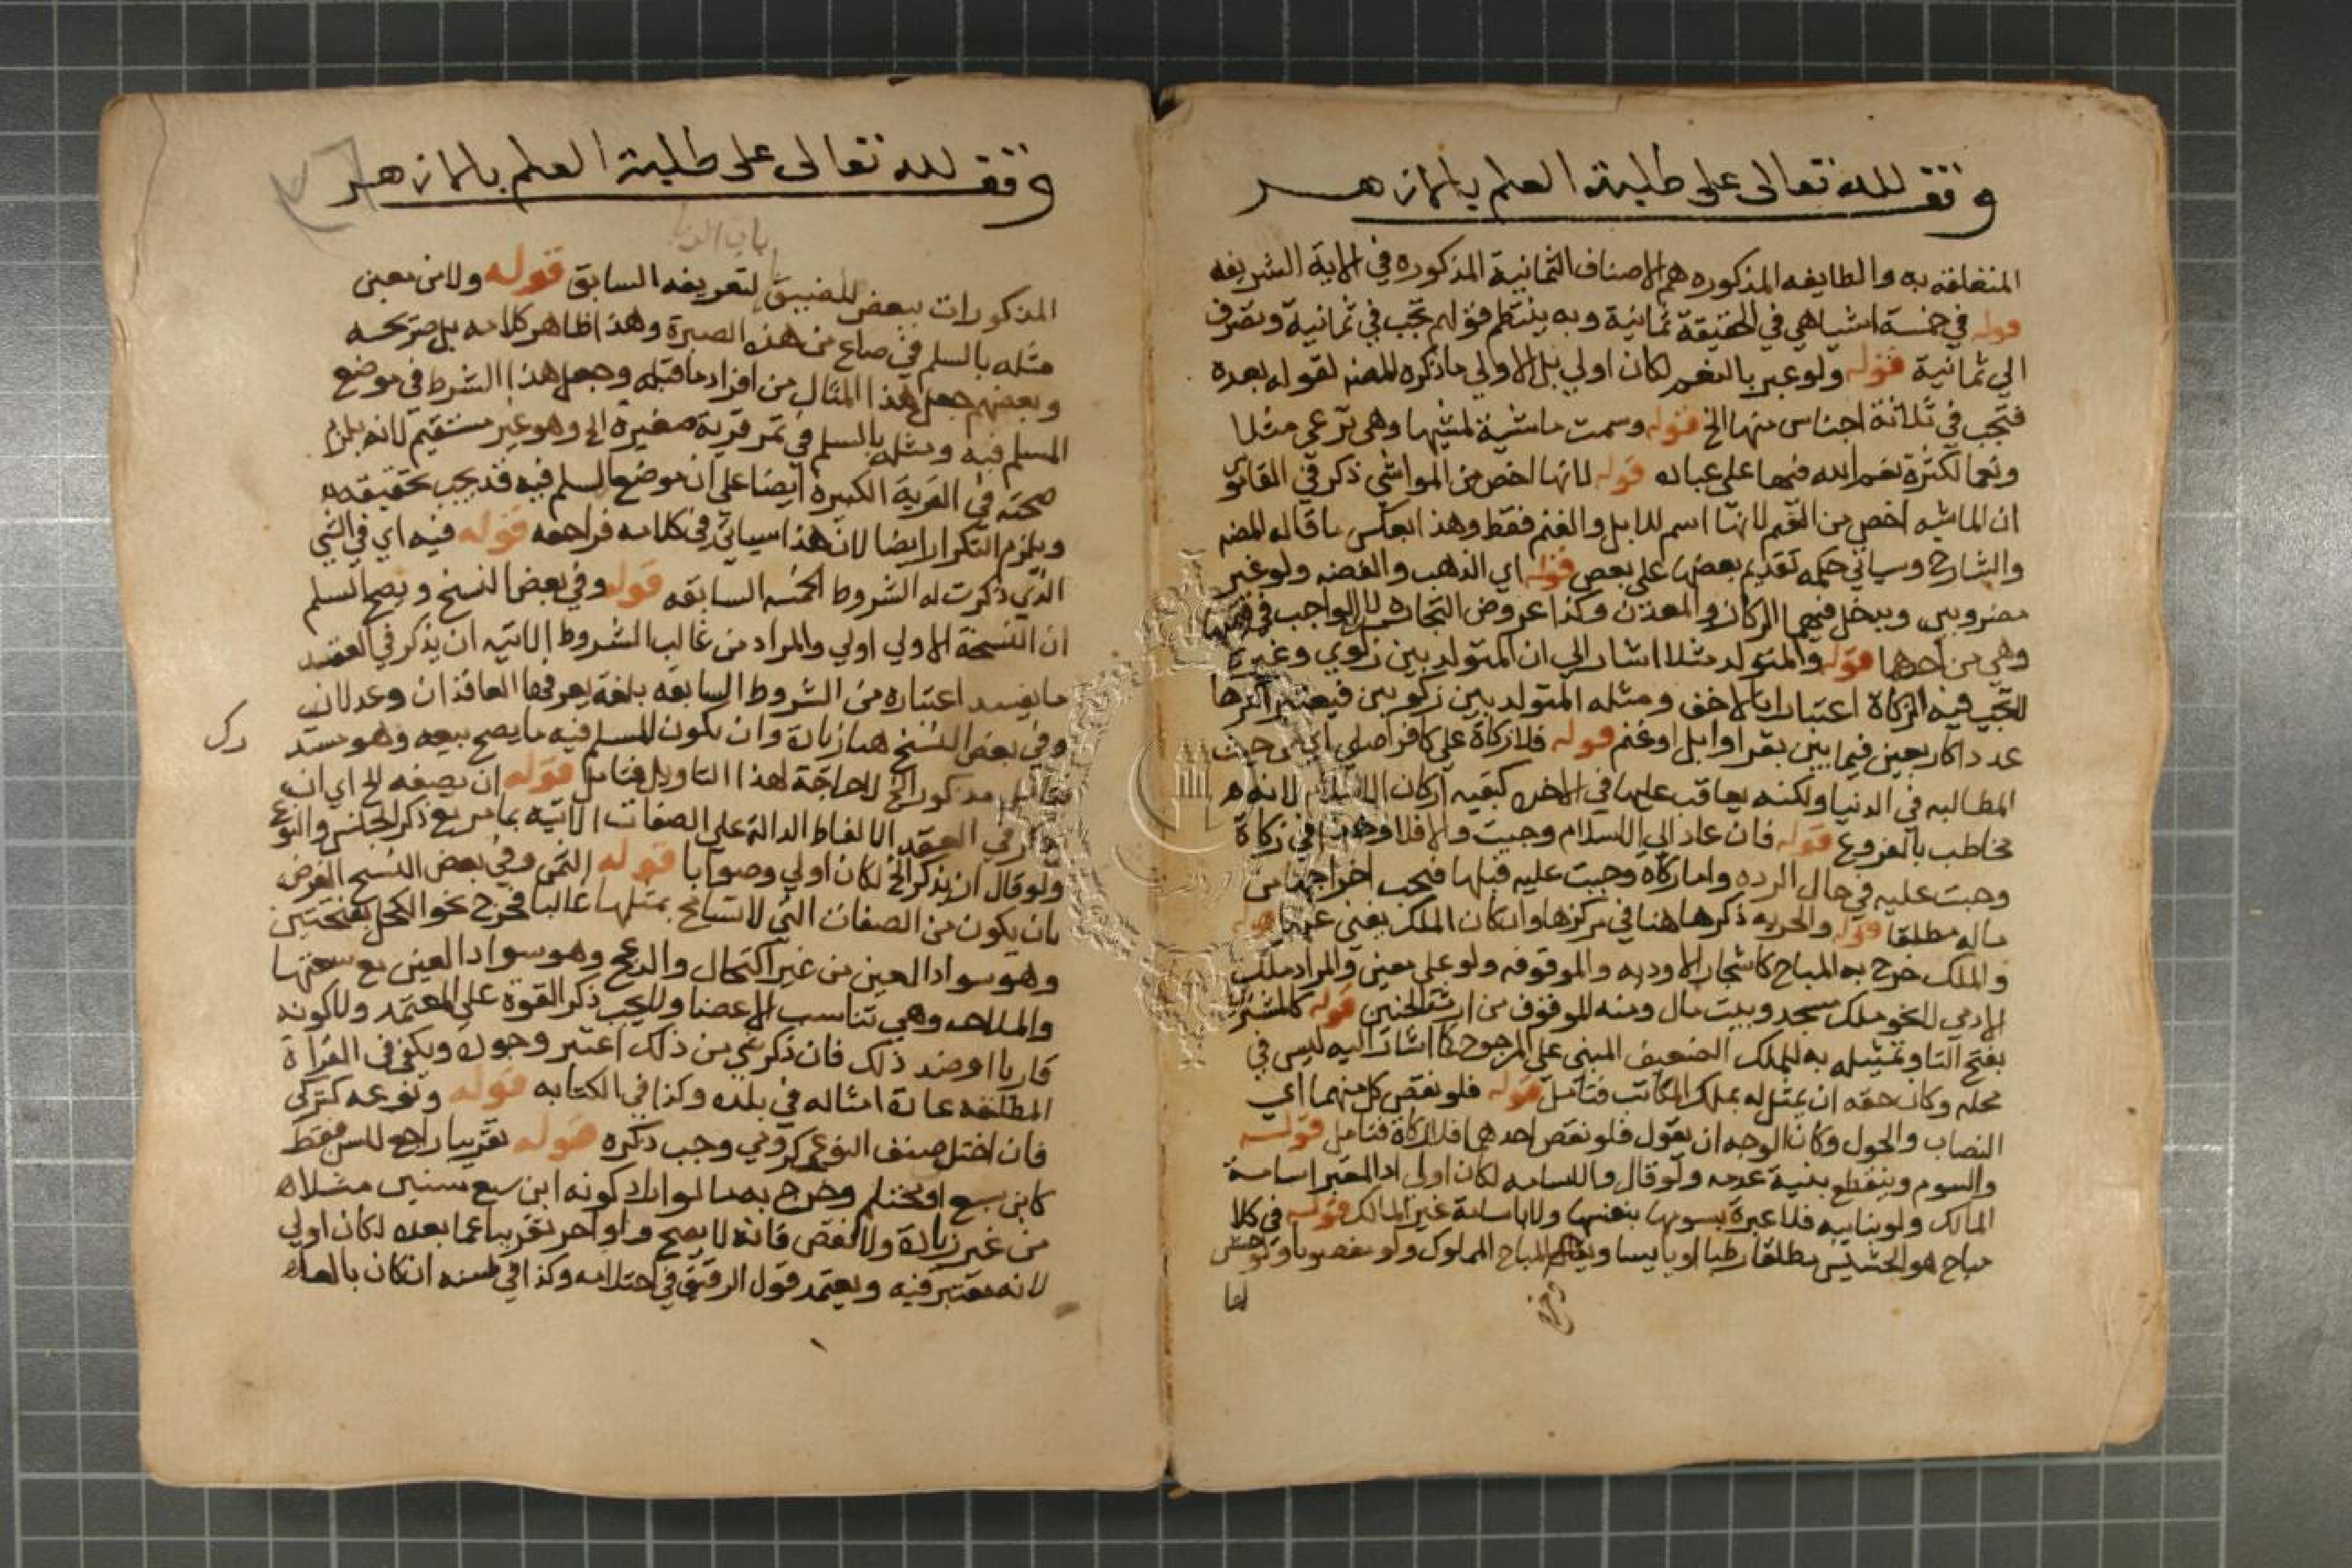 وقف لله تعالى على طلبة العلم بالازهر
المتعلقة به والطايفه المذكوره هم الاصناف الثمانية المذكوره في الاية الشريفه
قوله في خمسة اشيا هي في الحقيقة ثمانية وبه ينتظم قولهم تجب في ثمانية وتصرف
الي ثمانية قوله ولو عبر بالنعم لكان اولي بل الاولي ما ذكره المصنف لقوله بعده
فتجب في ثلاثة اجناس منها الخ قوله وسميت ماشية لمشيها وهي ترعي مثلا
ونعما لكثرة نعم الله فيها على عباده قوله لانها اخص من المواشي ذكر في القاموس
ان الماشيه اخص من النعم لانها اسم للابل والغنم فقط وهذا بعكس ما قاله المصنف
والشارح وسياتي حكمه تقديم بعضها على بعض قوله اي الذهب والفضه ولو غير
مضروبين ويدخل فيهما الركاز والمعدن وكذا عروض التجاره لان الواجب في قيمتها
وهي من احدها قوله والمتولد مثلا اشار الي ان المتولد بين زكوي وغيره
لا تجب فيه الزكاة اعتبارا بالاخف ومثله المتولد بين زكويين فيعتبر اكثرها
عددا كاربعين فيما بين بقر او ابل او غنم قوله فلا زكاة على كافر اصلي اي من حيث
المطالبه في الدنيا ولكنه يعاقب عليها في الاخره كبقيه اركان الاسلام لانه
مخاطب بالفروع قوله فان عاد الي الاسلام وجبت والا فلا وهذا في زكاة
وجبت عليه في حال الرده واما زكاة وجبت عليه قبلها فيجب اخراجها من
ماله مطلقا قوله والحريه ذكرها هنا في مركزها وان كان الملك يغني عنها قوله
والملك خرج به المباح كاشجار الاوديه والموقوفه ولو على معين والمراد ملك
الادمي لا نحو ملك مسجد وبيت مال ومنه الموقوف من ارث الجنين قوله كالمشتري
بفتح التا وتمثيله به للملك الضعيف المبني على المرجوح كما اشار اليه ليس في
محله وكان حقه ان يمثل له بملك المكاتب فتامل قوله فلو نقص كل منهما اي
النصاب والحول وكان الوجه ان يقول فلو نقص احدهما فلا زكاة فتامل قوله
والسوم وينقطع بنية عدمه ولو قال والاسامه لكان اولي اذ المعتبر اسامة
المالك ولو بنايبه فلا عبرة بسومها بنفسها ولا باسامة غير المالك قوله في كلا
مباح هو الحشيش مطلقا رطبا او يابسا المباح المملوك ولو مغصوبا
وقف لله تعالى على طلبة العلم بالازهر
المذكورات ببعض للضيق لتعريفه السابق قوله ولا من معين
مثله بالسلم في صاع من هذه الصبرة وهذا ظاهر كلامه بل صريحه
وبعضهم جعل هذا المثال من افراد ما قبله وجعل هذا الشرط في موضع
المسلم فيه ومثله بالسلم في تمر قرية صغيرة الخ وهو غير مستقيم لانه يلزم
صحته في القرية الكبيرة ايضا على ان موضع المسلم فيه قد يجب تحقيقه
ويلزم التكرار ايضا لان هذا سياتي في كلامه فراجعه قوله فيه اي في الشي
الذي ذكرت له الشروط الخمسه السابقه قوله وفي بعض النسخ ويصح السلم
ان النسخة الاولي اولي والمراد من غالب الشروط الاتيه ان يذكر في العقد
ما يفيد اعتباره من الشروط السابقه بلغة يعرفها العاقدان وعدلان
وفي بعض النسخ هنا زيادة وان يكون المسلم فيه ما يصح بيعه وهو
مذكور الخ لا حاجة لهذا التاويل فتامل قوله ان يصفه الخ اي ان
يذكر في العقد الالفاظ الدالة على الصفات الاتيه بما مر مع ذكر الجنس والنوع
ولو قال ان يذكر الخ لكان اولي وصوابا قوله الثمن وفي بعض النسخ الغرض
بان يكون من الصفات التي لا تسامح بمثلها غالبا فخرج نحو الكحل بفتحتين
وهو سواد العين من غير اكتحال والدعج وهو سواد العين مع سعتها
والملاحه وهي تناسب الاعضا ولا يجب ذكر القوة على المعتمد ولا كونه
قاريا او ضد ذلك فان ذكر شي من ذلك اعتبر وجوده ويكفي في القراة
المطلقه عادة امثاله في بلده وكذا في الكتابه قوله ونوعه كتركي
فان اختلف صنف النوع كرومي وجب ذكره قوله تقريبا راجع للسن فقط
كابن سبع او محتلم وخرج به ما لو اراد كونه ابن سبع سنين مثلا
من غير زيادة ولا نقص فانه لا يصح ولو اخر تقريبا عما بعده لكان اولي
لانه معتبر فيه ويعتمد قول الرقيق في احتلامه وكذا في سنه ان كان بالغا